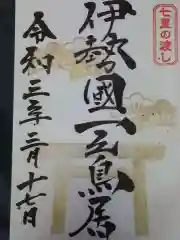 七里の渡し
伊勢國一之鳥居
令和三年二月十七日